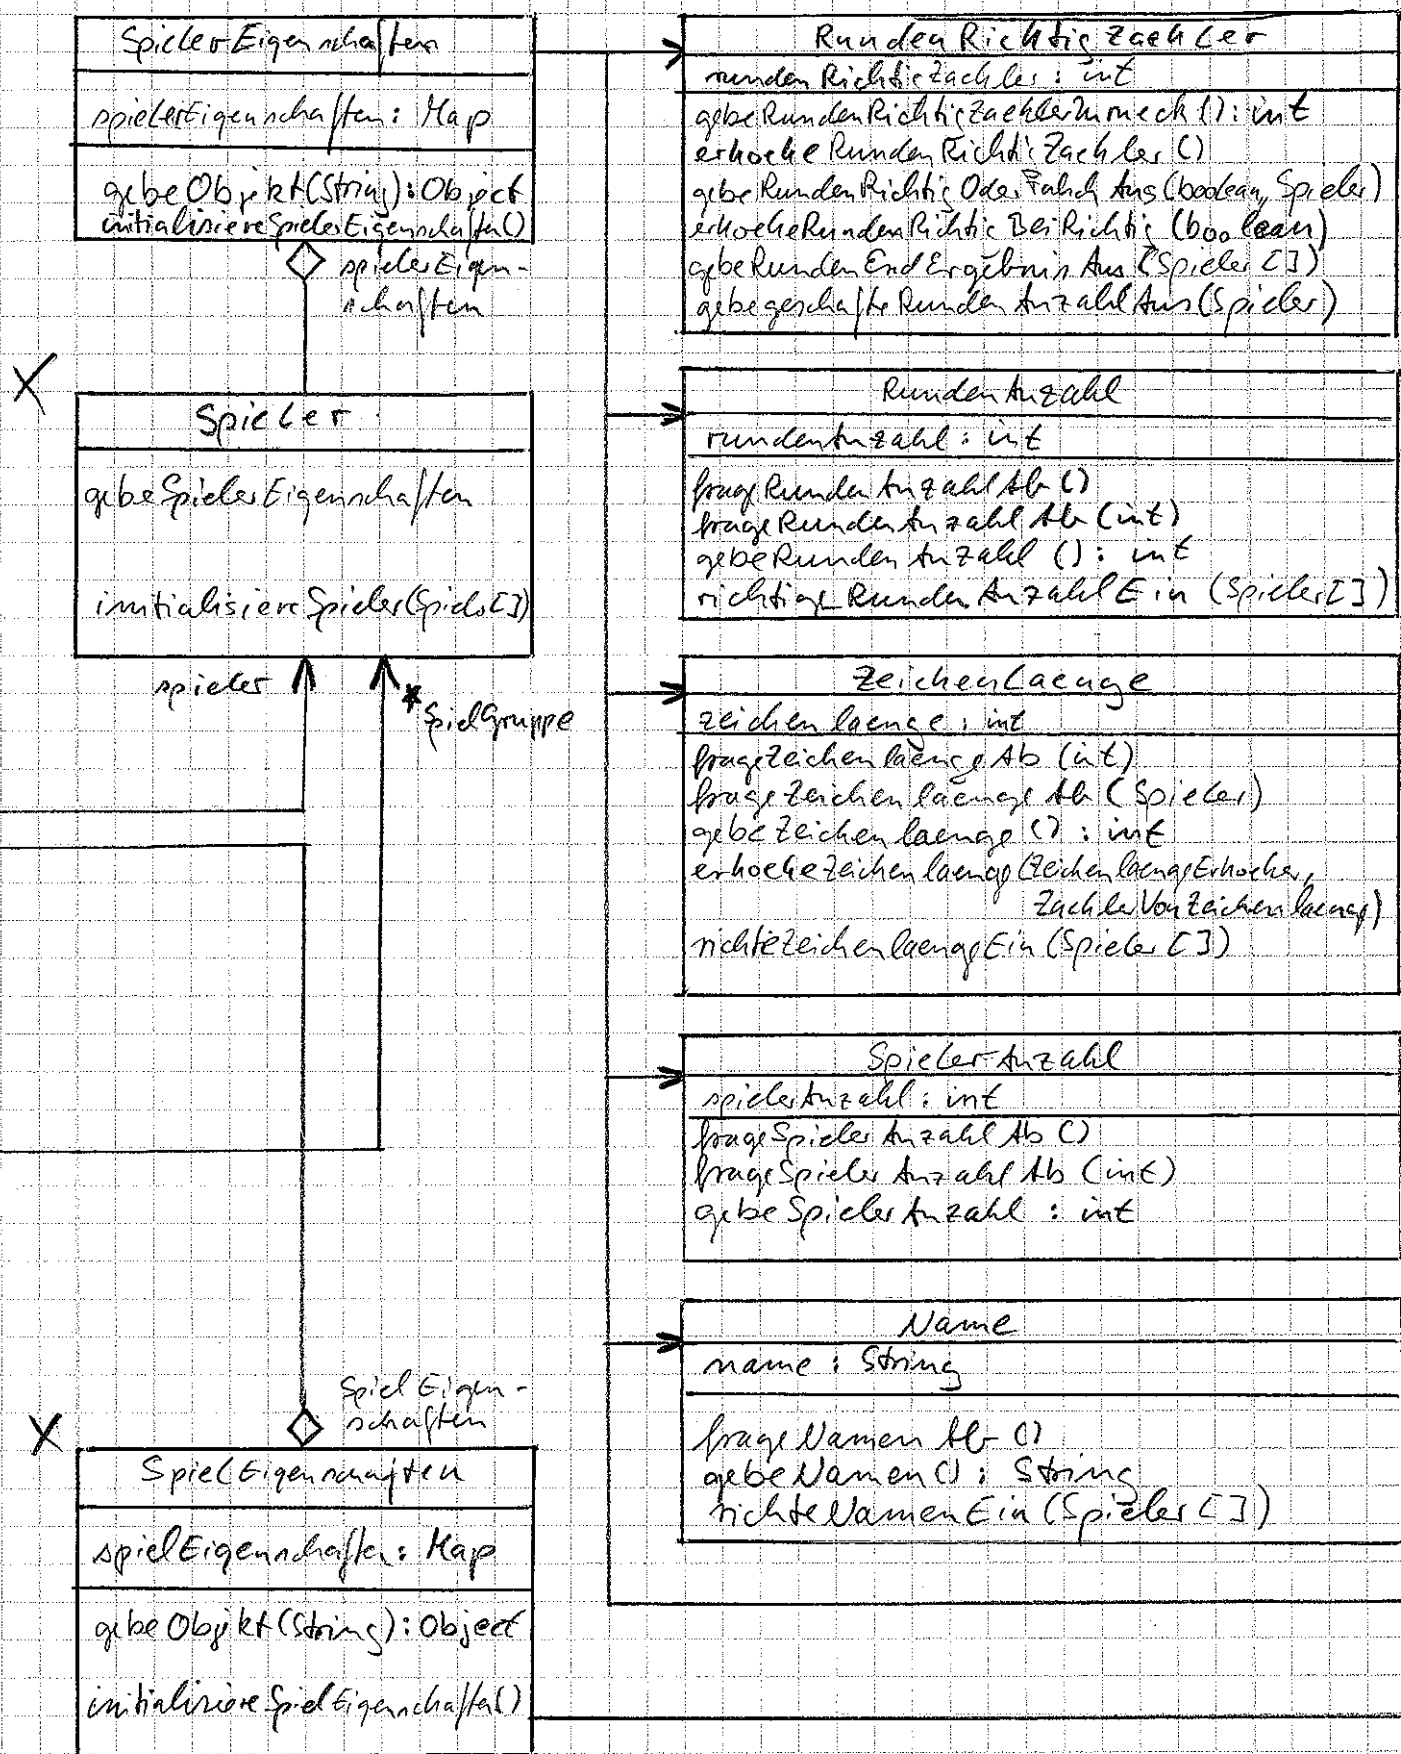 SpielerEigenschaften
spielerEigenschaften: Map
gebeObjekt(String): Object
initialisiereSpielerEigenschaften()
spielerEigen-
schaften
X
Spieler
gebeSpielerEigenschaften
initialisiereSpieler(Spieler[])
spieler
*
SpielGruppe
Spiel Eigen-
schaften
X
SpielEigenschaften
spielEigenschaften: Map
gebeObjekt(String): Object
initialisiereSpielEigenschaften()
RundenRichtigZaehler
rundenRichtigZaehler: int
gebeRundenRichtigZaehlerZurueck(): int
erhoeheRundenRichtigZaehler()
gebeRundenRichtigOderFalschAus(boolean, Spieler)
erhoeheRundenRichtigBeiRichtig(boolean)
gebeRundenEndErgebnisAus(Spieler[])
gebegeschafteRundenAnzahlAus(Spieler)
RundenAnzahl
rundenAnzahl: int
frageRundenAnzahlAb()
frageRundenAnzahlAb(int)
gebeRundenAnzahl(): int
richtige RundenAnzahlEin(Spieler[])
ZeichenLaenge
zeichenlaenge: int
frageZeichenlaengeAb(int)
frageZeichenlaengeAb(Spieler)
gebeZeichenlaenge(): int
erhoeheZeichenlaenge(ZeichenlaengeErhoeher,
ZaehlerVonZeichenlaenge)
richteZeichenlaengeEin(Spieler[])
SpielerAnzahl
spielerAnzahl: int
frageSpielerAnzahlAb()
frageSpielerAnzahlAb(int)
gebeSpielerAnzahl: int
Name
name: String
frageNamenAb()
gebeNamen(): String
richteNamenEin(Spieler[])